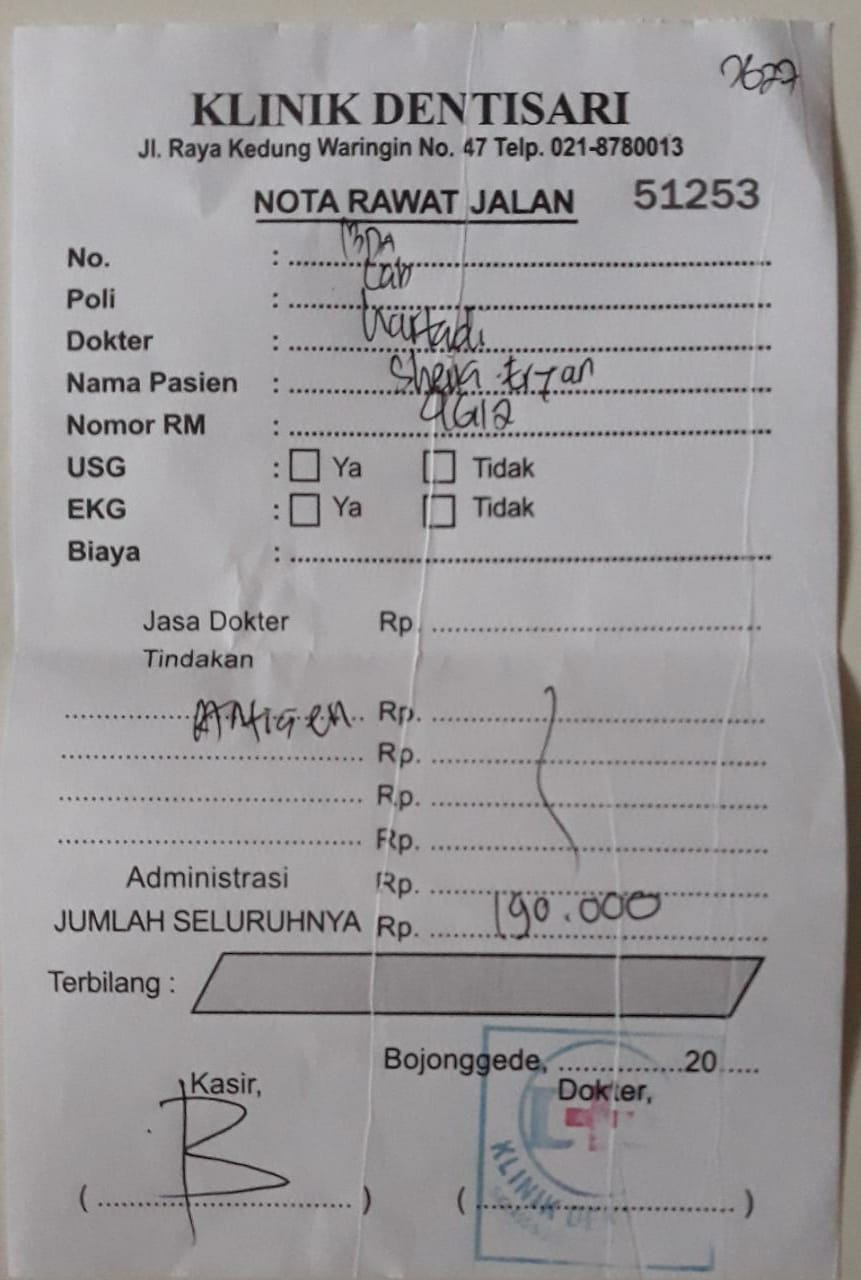 7627
KLINIK DENTISARI
Jl. Raya Kedung Waringin No. 47 Telp. 021-8780013
NOTA RAWAT JALAN 51253
No. :
Poli : Lab
Dokter : Hartadi
Nama Pasien : Sheiva Erzan
Nomor RM : 9612
USG : Ya Tidak
EKG : Ya Tidak
Biaya :
Jasa Dokter Rp.
Tindakan
Antigen Rp.
Rp.
Rp.
Rp.
Administrasi Rp.
JUMLAH SELURUHNYA Rp. 190.000
Terbilang :
Bojonggede, 20
Kasir, Dokter,
( ) ( )
KLINIK